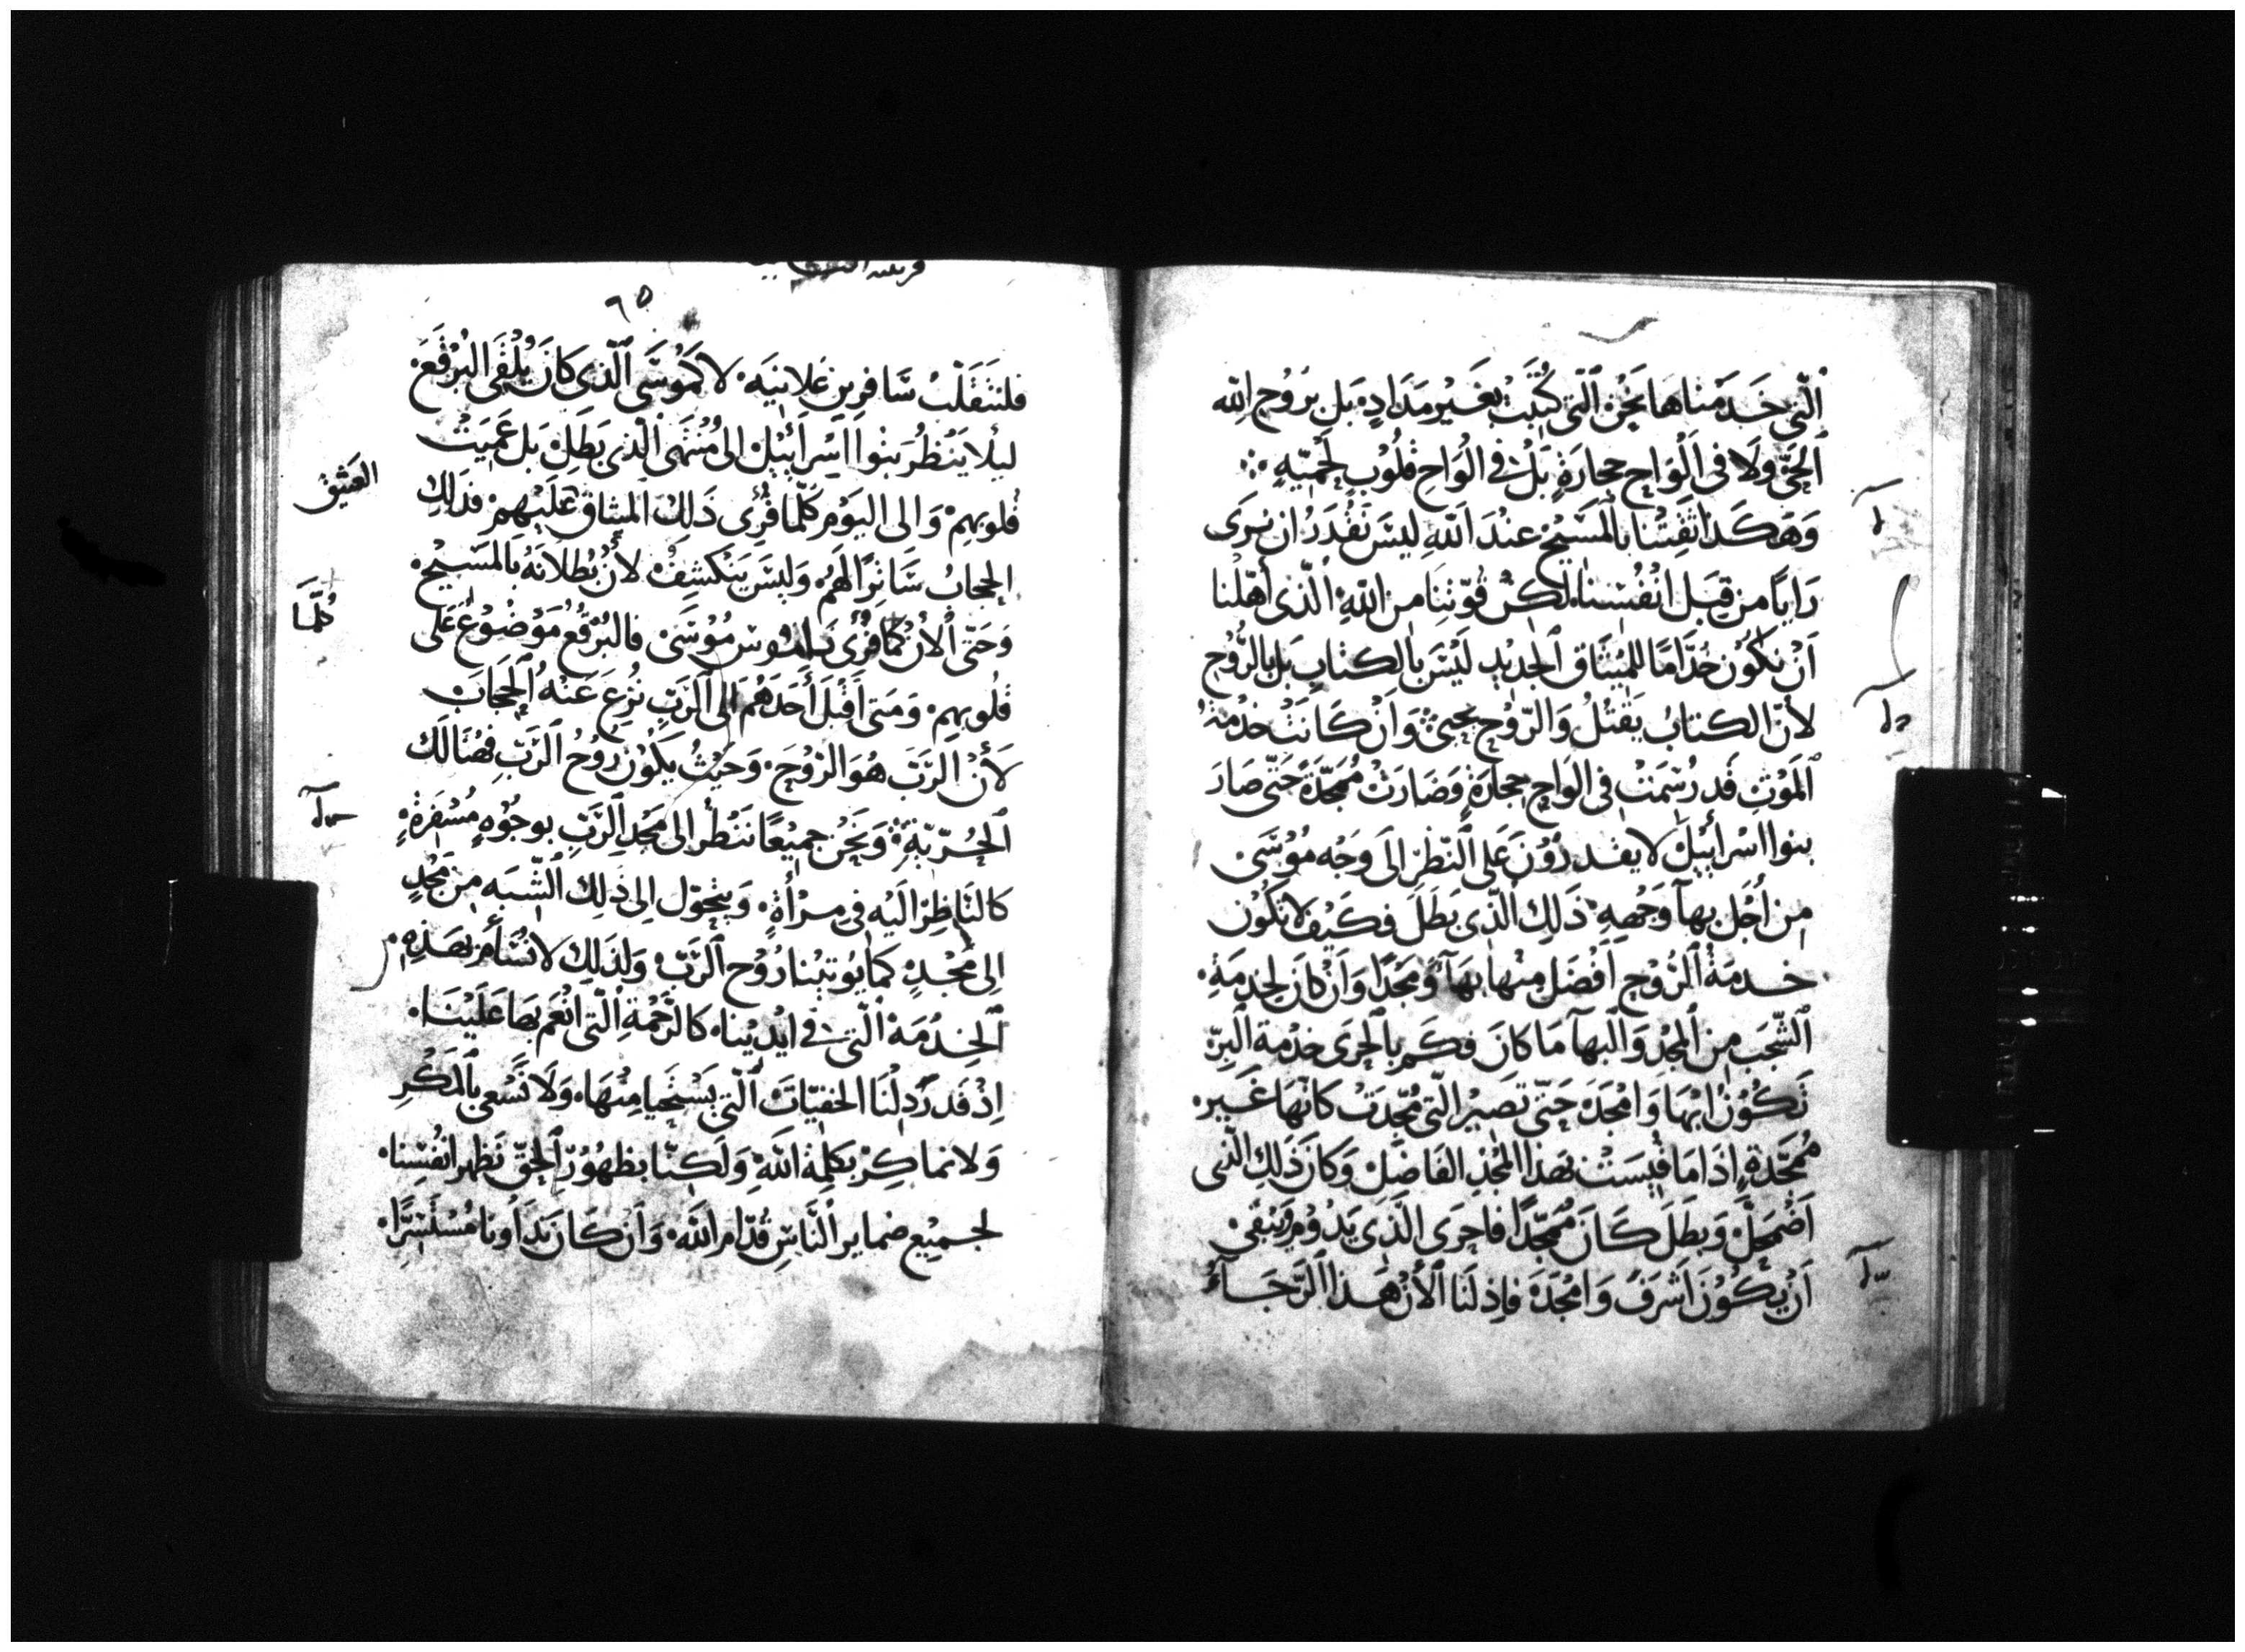 الّتي خَدَمْناهَا نَحْنُ الّتي كُتبَتْ بغَيْر مَدَادٍ بَل برُوح الله
الحَيّ ولَا في الْوَاح حجارَةٍ بَلْ في الْوَاح قلُوْب لحْميّه
وَهَكَذا ثقتنا بالمسَيْح عنْدَ اللهِ ليسَ نَقْدَرُ ان نرَى
رَايًا من قِبَل انْفُسْنا لكنْ قُوّتنَا من اللهِ الّذى أهّلْنا
اَنْ نكُوْن خُدّامًا للميْثَاق الجدَيْد لَيْسَ بالكتابِ بَل بالرُّوْح
لأنّ الكتابُ يقَتْلُ وَالرّوُح يحيى وَانْ كَانَتْ خدْمة
المَوْتِ قَد رُسّمَتْ في الوَاح حجارَةٍ وَصَارَتْ مُمَجّدَةً حَتّى صَارَ
بنوا اسْرائيْلَ لا يقدرُوْنَ عَلى النّظَر الَى وَجْه مُوْسَىْ
من أجْل بهآ وَجْههِ ذَلِكَ الّذى بَطَلَ فكَيْف لا تكُوْن
خدمَةُ الرُّوْح اَفْضَل منْها بهآءً وَمَجْدًا وَانْ كَانَ لخدمَةِ
الشّجَب من المجْدِ وَالبهآ مَا كانَ فكَم بالحَرَى خدْمة البِرّ
تَكُوْنُ ابهَا وَامْجَدَ حَتّى تصَيْر الّتي مُجّدَتْ كانّهَا غَيْر
مُمَجّدَةٍ اِذَا مَا قيْسَتْ بهَذا المجْدِ الفَاضَلْ وَكانَ ذَلكَ الّذى
اَضْمَحَلّ وَبطَلَ كَانَ مُمَجّدًا فاحرَى الّذَى يَدُوْم وَيَبْقَىْ
اَنْ يكُوْنَ اَشرَفَ وَامْجَدَ فاِذ لنَا الاَنْ هَذا الرَّجَآءُ
٩٥
فلنتَقَلّبْ سَافرِين عَلانيَه لا كَمُوسَى الّذى كَانَ يُلْقَى البُرْقَعَ
ليلا يَنْظُر بَنْوا اسْرَائيْلَ الى مُنْتَهَى الّذى بَطَلَ بَل عَميَتْ
قلوبهمْ وَالى اليَوْم كُلّما قُرِئ ذَلكَ الميثاق عَلَيْهمْ فذلكَ
العَتيْق
الحِجَابُ سَاترًا لهَمُ وَليْسَ يَنْكشفْ لأنْ بُطْلانَهُ بالمَسَيْح
وَحَتّى الأنْ كُلّما قُرِئ نامُوس مُوْسَىْ فالبُرْقُعُ مَوْضُوْعُ عَلى
كُلّمَا
قلُوبهِمْ وَمَتى اَقْبَلَ أحَدَهُمْ الى الرّبّ نُزعَ عَنْهُ الحِجَابَ
لأنْ الرّبّ هُوَ الرّوْحَ وَحَيْثُ يكُوْن رُوْحُ الرّبّ فهُنَالَك
الحُرّيّةِ وَنحْن جميْعًا نَنْظُر الى مَجْد الرّبِّ بوجُوْهٍ مُسْفرَةٍ
كالنّاظِر الَيْه في مرْأةٍ وَيتْحَوّل الى ذَلكَ الشّبَه من مَجْدٍ
الى مَجْدٍ كما يُوتيْنا رُوْح الرّبّ وَلذَلكَ لا نسْأم بهَذهِ
الخدْمَة الّتي في ايْديْنا كالرّحْمةِ الّتي انْعَم بهَا عَلَيْنَا
اِذْ قَد رُدِلْنَا الخفيّاتَ الّتي يَسْتَحيَا منْهَا وَلَا نَسْعى بالمَكْرِ
وَلا نماكِرْ بكلمة اللهِ وَلَكنّا بظهُوْرِ الحَقّ نَظْهر انفُسْنا
لجميْع ضماير النّاسِ قُدّام اللهِ وَانْ كَان نَدَاؤنا مُسْتَتِرًا